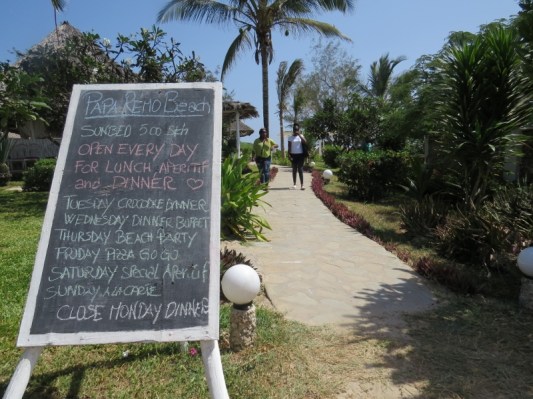 PAPA REMO Beach
SUNBED 500 Ksh
OPEN EVERY DAY
FOR LUNCH APERITIF
and DINNER ♡
TUESDAY CROCODILE BANNER
WEDNESDAY DINNER BUFFET
THURSDAY BEACH PARTY
FRIDAY PIZZA GO GO
SATURDAY SPECIAL APERITIF
SUNDAY A LA CARTE
CLOSE MONDAY DINNER